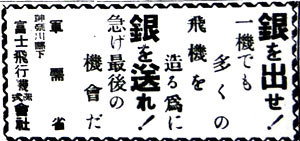 銀を出せ!
一機でも
多くの
飛機を
造る爲に
銀を送れ!
急げ最後の
機會だ
軍需省
神奈川縣下
富士飛行機株式會社